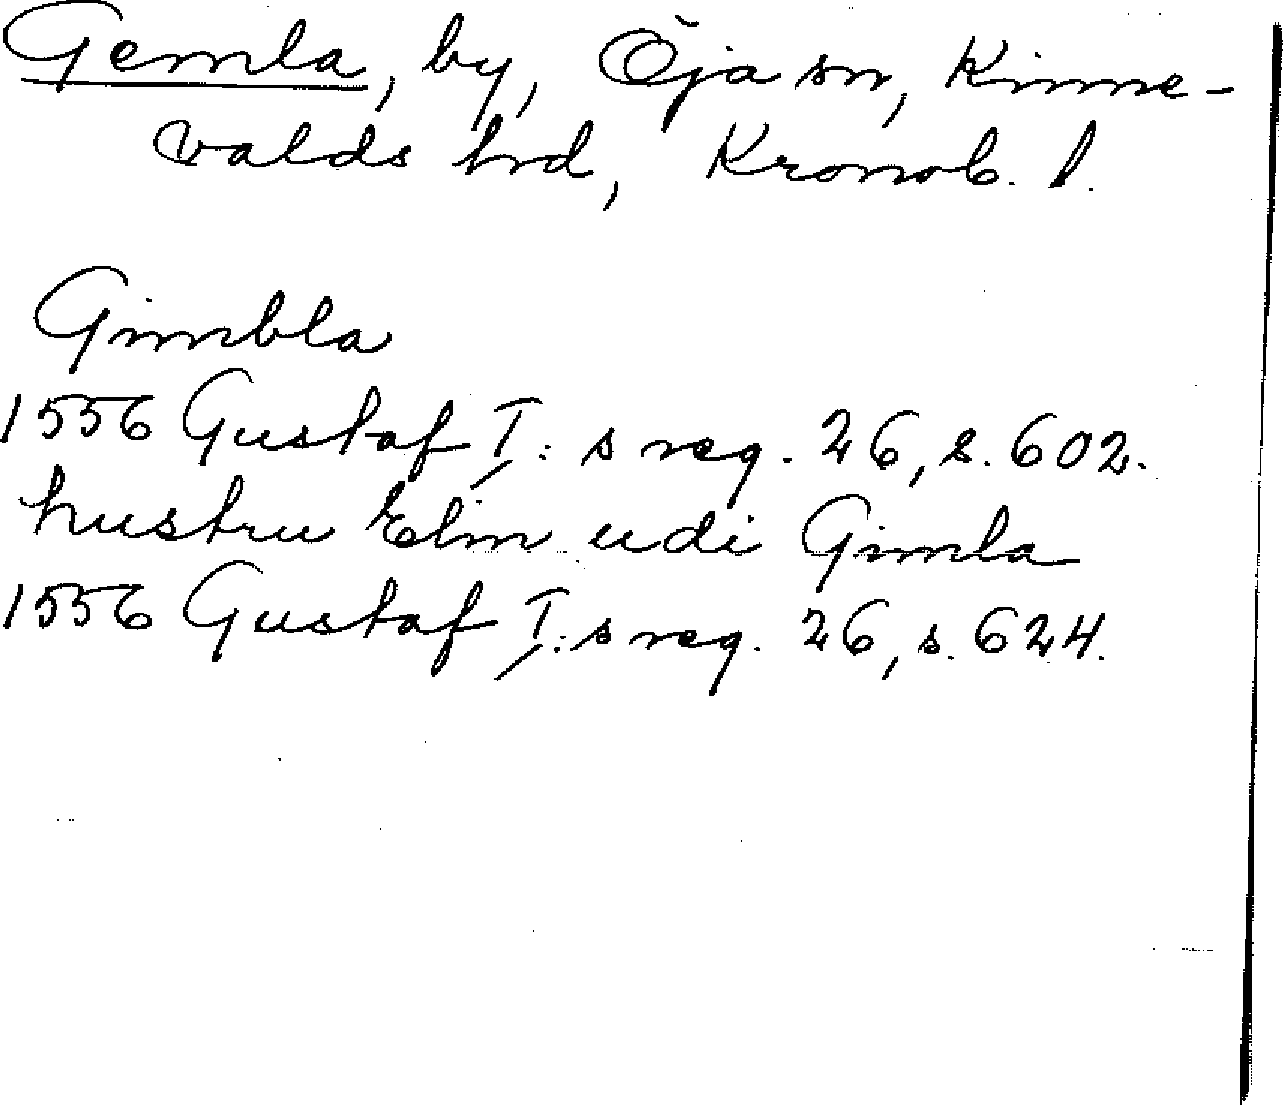 Gemla, by, Öja sn, Kinne-
valds hrd, Kronob. l.
Gimbla
1556 Gustaf I: s reg. 26, s. 602.
hustru Elin udi Gimla
1556 Gustaf I: s reg. 26, s. 624.